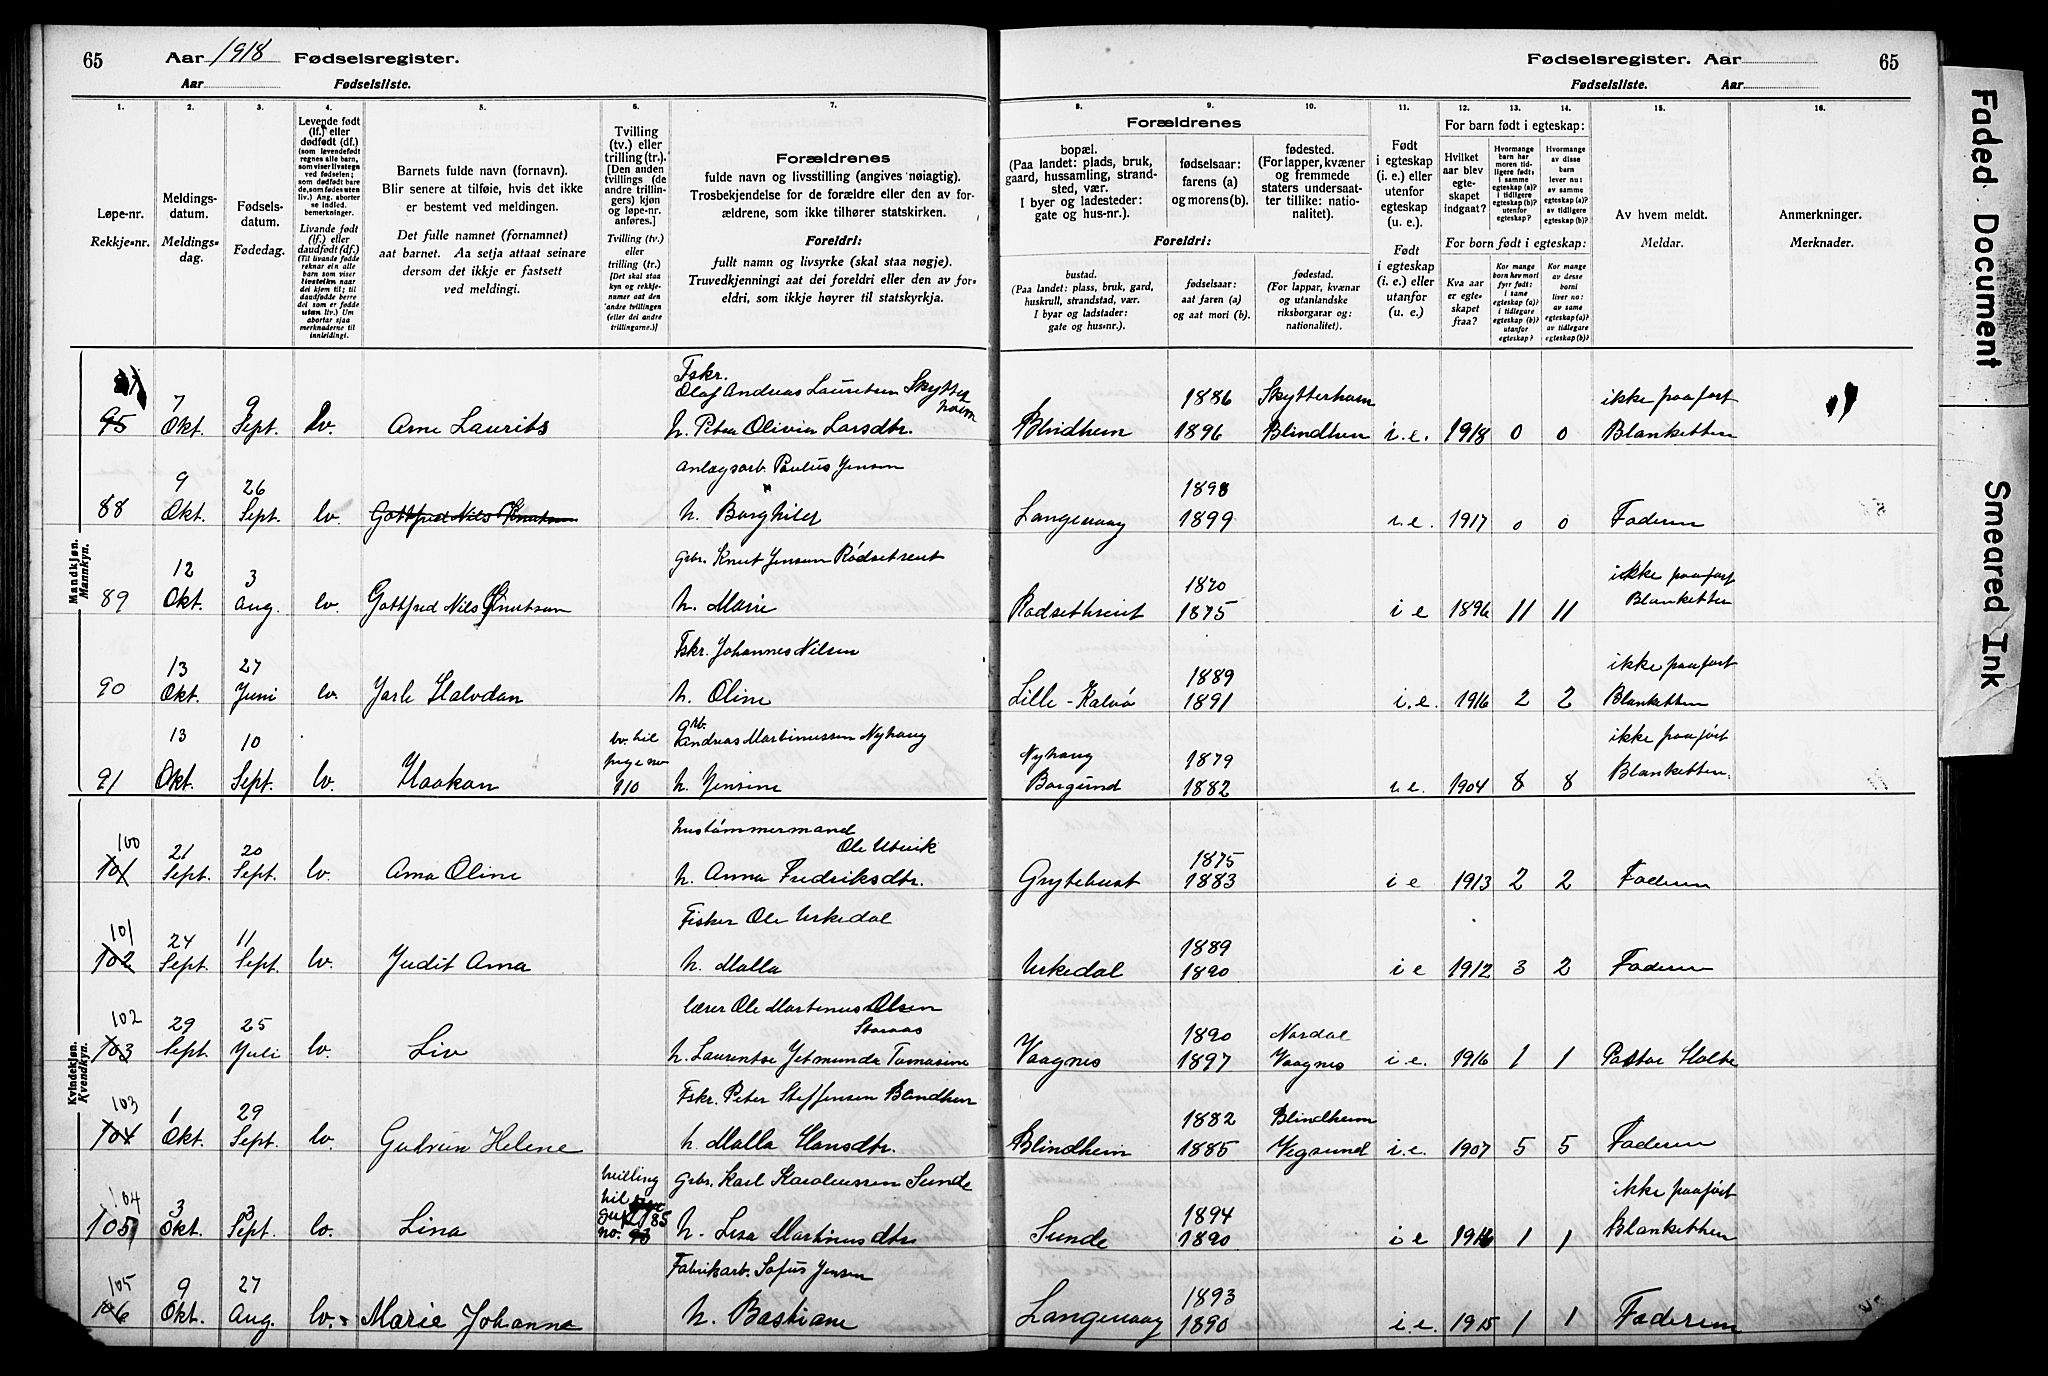 65 Aar 1918 Fødselsregister.
Aar Fødselsliste.
Fødselsregister. Aar 65
Fødselsliste. Aar
1. 2. 3. 4. 5. 6. 7. 8. 9. 10. 11. 12. 13. 14. 15. 16.
Løpe-nr.
Rekkje-nr.
Meldings-
datum.
Meldings-
dag.
Fødsels-
datum.
Fødedag.
Levende født
(lf.) eller
dødfødt (df.)
(som levendefødt
regnes alle barn,
som viser livstegn
ved fødselen;
som dødfødt bare
de, som fødes uten
liv.) Ang. aborter
se indled.
bemerkninger.
Livande født
(lf.) eller
daudfødt (df.)
(Til livande fødde
reknar ein alle
barn som viser
livsteikn naar
dei kjem til; til
daudfødde berre
dei som er fødde
utan liv.) Um
abortar sjaa
merknaderne til
innleidingi.
Barnets fulde navn (fornavn).
Blir senere at tilføie, hvis det ikke
er bestemt ved meldingen.
Det fulle namnet (fornamnet)
aat barnet. Aa setja attaat seinare
dersom det ikkje er fastsett
ved meldingi.
Tvilling
(tv.) eller
trilling (tr.).
[Den anden
tvillings (de
andre trillin-
gers) kjøn
og løpe-nr.
anføres.]
Tvilling (tv.)
eller
trilling (tr.)
[Det skal staa
kyn og rekkje-
numer aat den
andre tvillingen
(eller dei andre
trillingarne.)]
Forældrenes
fulde navn og livsstilling (angives nøiagtig).
Trosbekjendelse for de forældre eller den av for-
ældrene, som ikke tilhører statskirken.
Foreldri:
fullt namn og livsyrke (skal staa nøgje).
Truvedkjenningi aat dei foreldri eller den av for-
eldri, som ikkje høyrer til statskyrkja.
Forældrenes
bopæl.
(Paa landet: plads, bruk,
gaard, hussamling, strand-
sted, vær.
I byer og ladesteder:
gate og hus-nr.).
fødselsaar:
farens (a)
og morens (b).
fødested.
(For lapper, kvæner
og fremmede
staters undersaat-
ter tillike: natio-
nalitet).
Foreldri:
bustad.
(Paa landet: plass, bruk, gard,
huskrull, strandstad, vær.
I byar og ladstader:
gate og hus-nr.).
fødselsaar:
aat faren (a)
og aat mori (b).
fødestad.
(For lappar, kvænar
og utanlandske
riksborgarar og:
nationalitet).
Født
i egteskap
(i. e.) eller
utenfor
egteskap
(u. e.).
Født
i egteskap
(i. e.) eller
utanfor
(u. e.).
For barn født i egteskap:
Hvilket
aar blev
egte-
skapet
indgaat?
Hvormange
barn har
moren tidli-
gere født:
i samme
egteskap (a)?
i tidligere
egteskap (b)?
utenfor
egteskap?
Hvormange
av disse
barn
lever nu:
av samme
egteskap (a)?
av tidligere
egteskap (b)?
For born født i egteskap:
Kva aar
er egte-
skapet
fraa?
Kor mange
born hev mori
fyrr født:
i same
egteskap (a)?
i tidlegare
egteskap (b)?
utanfor
egteskap?
Kor mange
av desse
borni
liver no:
av same
egteskap (a)?
av tidlegare
egteskap (b)?
Av hvem meldt.
Meldar.
Anmerkninger.
Merknader.
Mandkjøn.
Mannkyn.
95 7 Okt. 9 Sept. Lv. Arne Laurits
Fskr.
Olaf Andreas Lauritsen Skytter
holm
h. Petra Olivia Larsdtr.
Blindhem 1886 1896 Skytterholm Blindhem i.e. 1918 0 0 ikke paaført Blanketten
88 9 Okt. 26 Sept. lv. Gottfred Nils Knutsen
Anlægsarb. Paulus Jensen
h. Borghild
Langevaag 1898 1899 i.e. 1917 0 0 Faderen
89 12 Okt. 3 Aug. lv. Gottfred Nils Knutsen
Grbr. Knut Jensen Rødsetreit
h. Marie
Rødsethreit 1870 1875 i e 1896 11 11 ikke paaført Blanketten
90 13 Okt. 27 Juni lv. Jarle Halvdan
Fskr. Johannes Nilsen
h. Oline
Lille-Kalvø 1889 1891 i.e. 1916 2 2 ikke paaført Blanketten
91 13 Okt. 10 Sept. lv. Haakon tv. til pige no 110
Grb.
Andreas Martinussen Nyhaug
h. Jensine
Nyhaug Borgund 1879 1882 i.e. 1904 8 8 ikke paaført Blanketten.
Kvindekjøn.
Kvendkyn.
100 101 21 Sept. 20 Sept. lv. Arna Oline
hustømmermand
Ole Utvik
h. Anna Fredriksdtr.
Grytebust 1875 1883 i e 1913 2 2 Faderen
101 102 24 Sept. 11 Sept. lv. Judit Arna
Fisker Ole Urkedal
h. Malla
Urkedal 1889 1890 i e 1912 3 2 Faderen
102 103 29 Sept. 25 Juli lv. Liv
lærer Ole Martinus Olsen
Storaas
h. Laurentse Jetmunda Tomasine
Vaagnes 1890 1897 Nordal Vaagnes i.e. 1916 1 1 Pastor Holte
103 104 1 Okt. 29 Sept. lv. Gudrun Helene
Fskr. Peter Steffensen Blindhem
h. Malla Hansdtr.
Blindheim 1882 1885 Blindheim Vegsund i.e. 1907 5 5 Faderen
104 105 3 Okt. 3 Sept. lv. Lina tvilling til gut no. 85
Grbr. Karl Karolinussen Sunde
h. Lisa Martinusdtr
Sunde 1894 1890 i e 1916 1 1 ikke paaført Blanketten
105 106 9 Okt. 27 Aug. lv. Marie Johanna
Fabrikarb. Sofus Jensen
h. Bastiane
Langevaag 1893 1890 i.e. 1915 1 1 Faderen
Faded Document
Smeared Ink